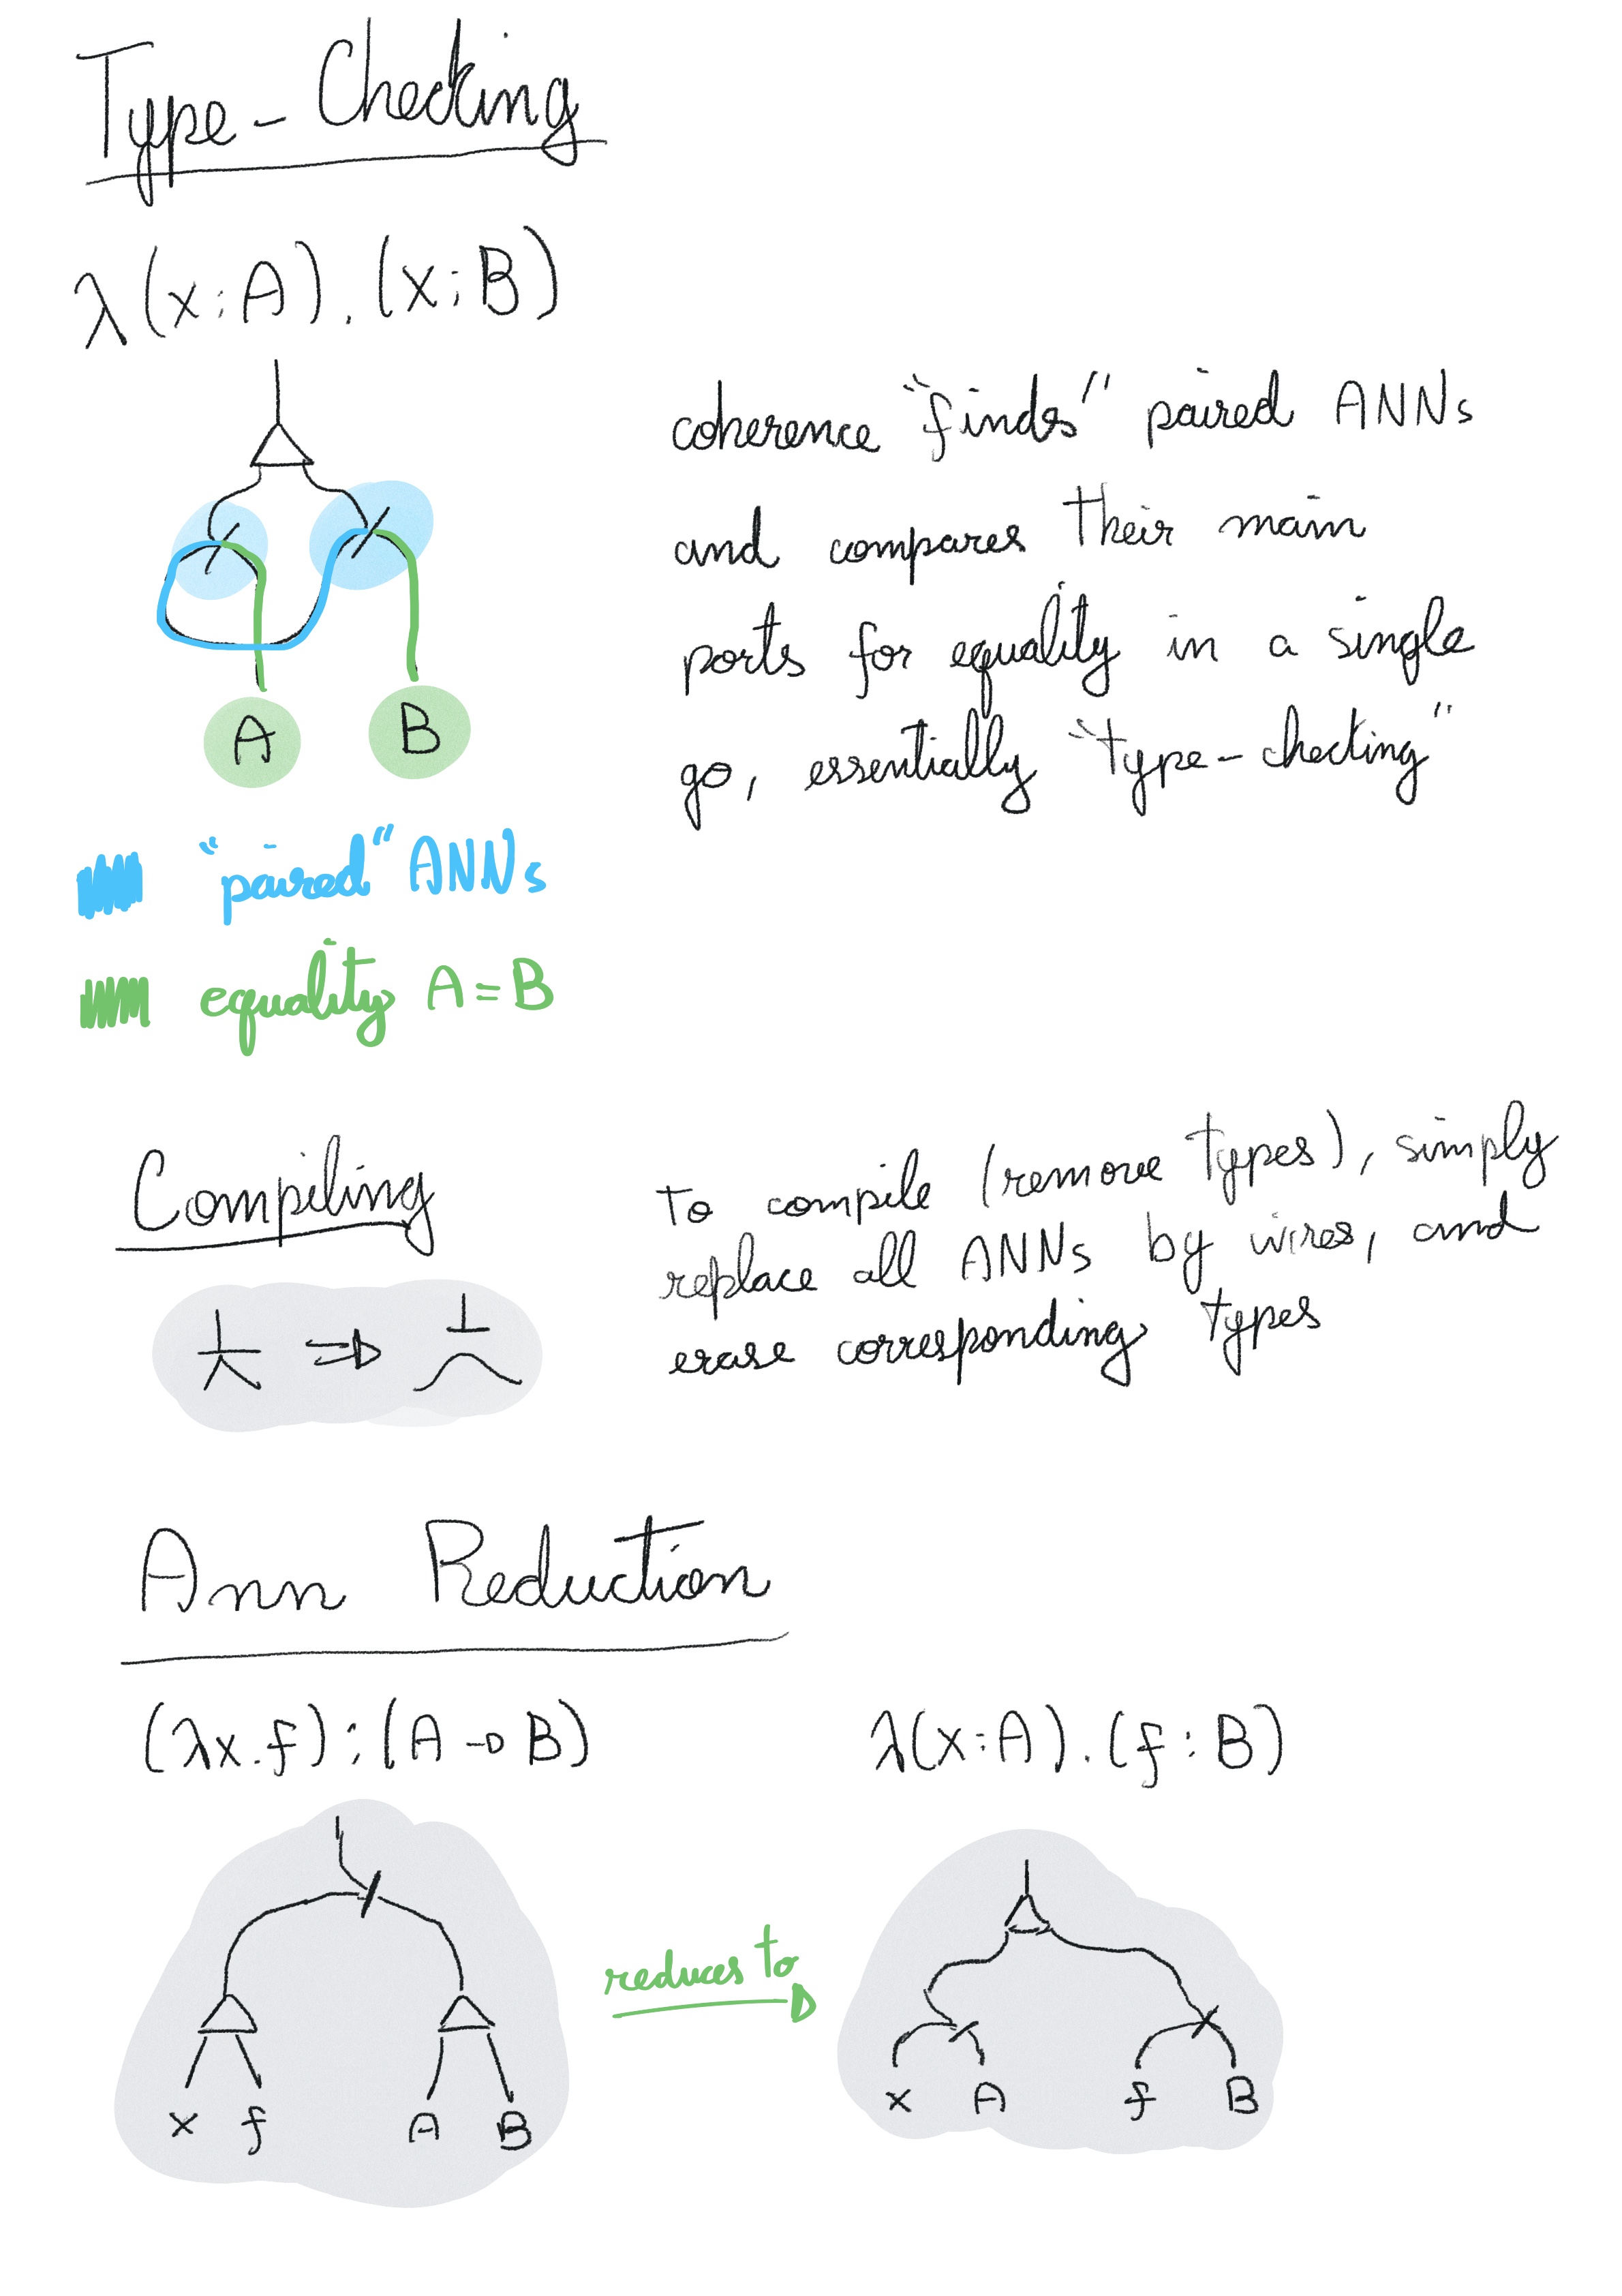 Type-Checking
λ(x:A).(x:B)
coherence "finds" paired ANNs
and compares their main
ports for equality in a single
go, essentially "type-checking"
A
B
"paired" ANNs
equality A=B
Compiling
to compile (remove types), simply
replace all ANNs by wires, and
erase corresponding types
Ann Reduction
(λx.f):(A→B)
λ(x:A).(f:B)
reduces to
x f A B
x A f B